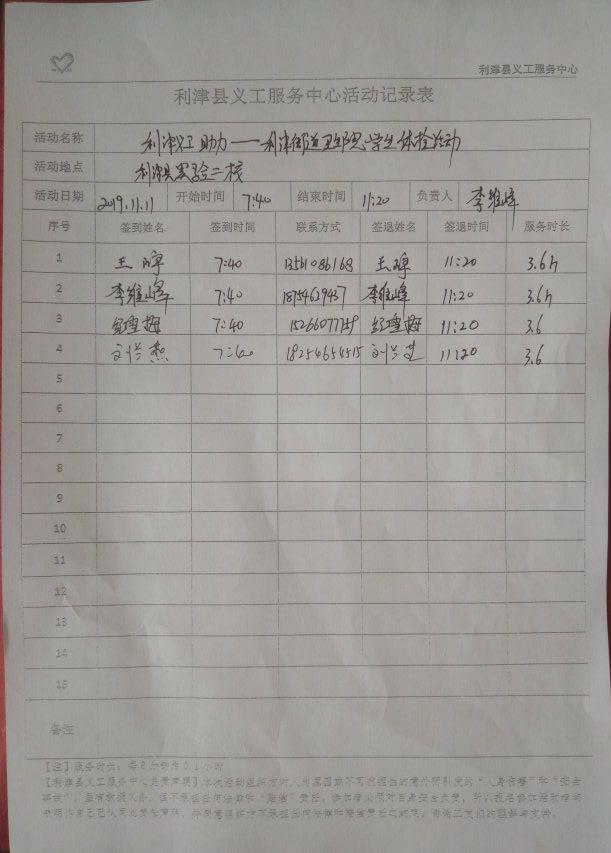 利津县义工服务中心
利津县义工服务中心活动记录表
活动名称 利津义工助力——利津街道卫生院学生体检活动
活动地点 利津县实验二校
活动日期 2019.11.11 开始时间 7:40 结束时间 11:20 负责人 李维峰
序号 签到姓名 签到时间 联系方式 签退姓名 签退时间 服务时长
1 王 7:40 13561086168 王 11:20 3.6h
2 李维峰 7:40 18754629437 李维峰 11:20 3.6h
3 7:40 11:20 3.6
4 刘兰燕 7:40 18254654515 刘兰燕 11:20 3.6
5
6
7
8
9
10
11
12
13
14
15
备注
【注】服务时长：每6分钟为0.1小时
【利津县义工服务中心免责声明】本次活动组织方对人为原因或不可抗拒性的意外而引发的“人身伤害”和“安全
事故”，虽有救援义务，但不承担任何法律和“赔偿”责任。参加者必须对自身安全负责，所以报名参加活动者